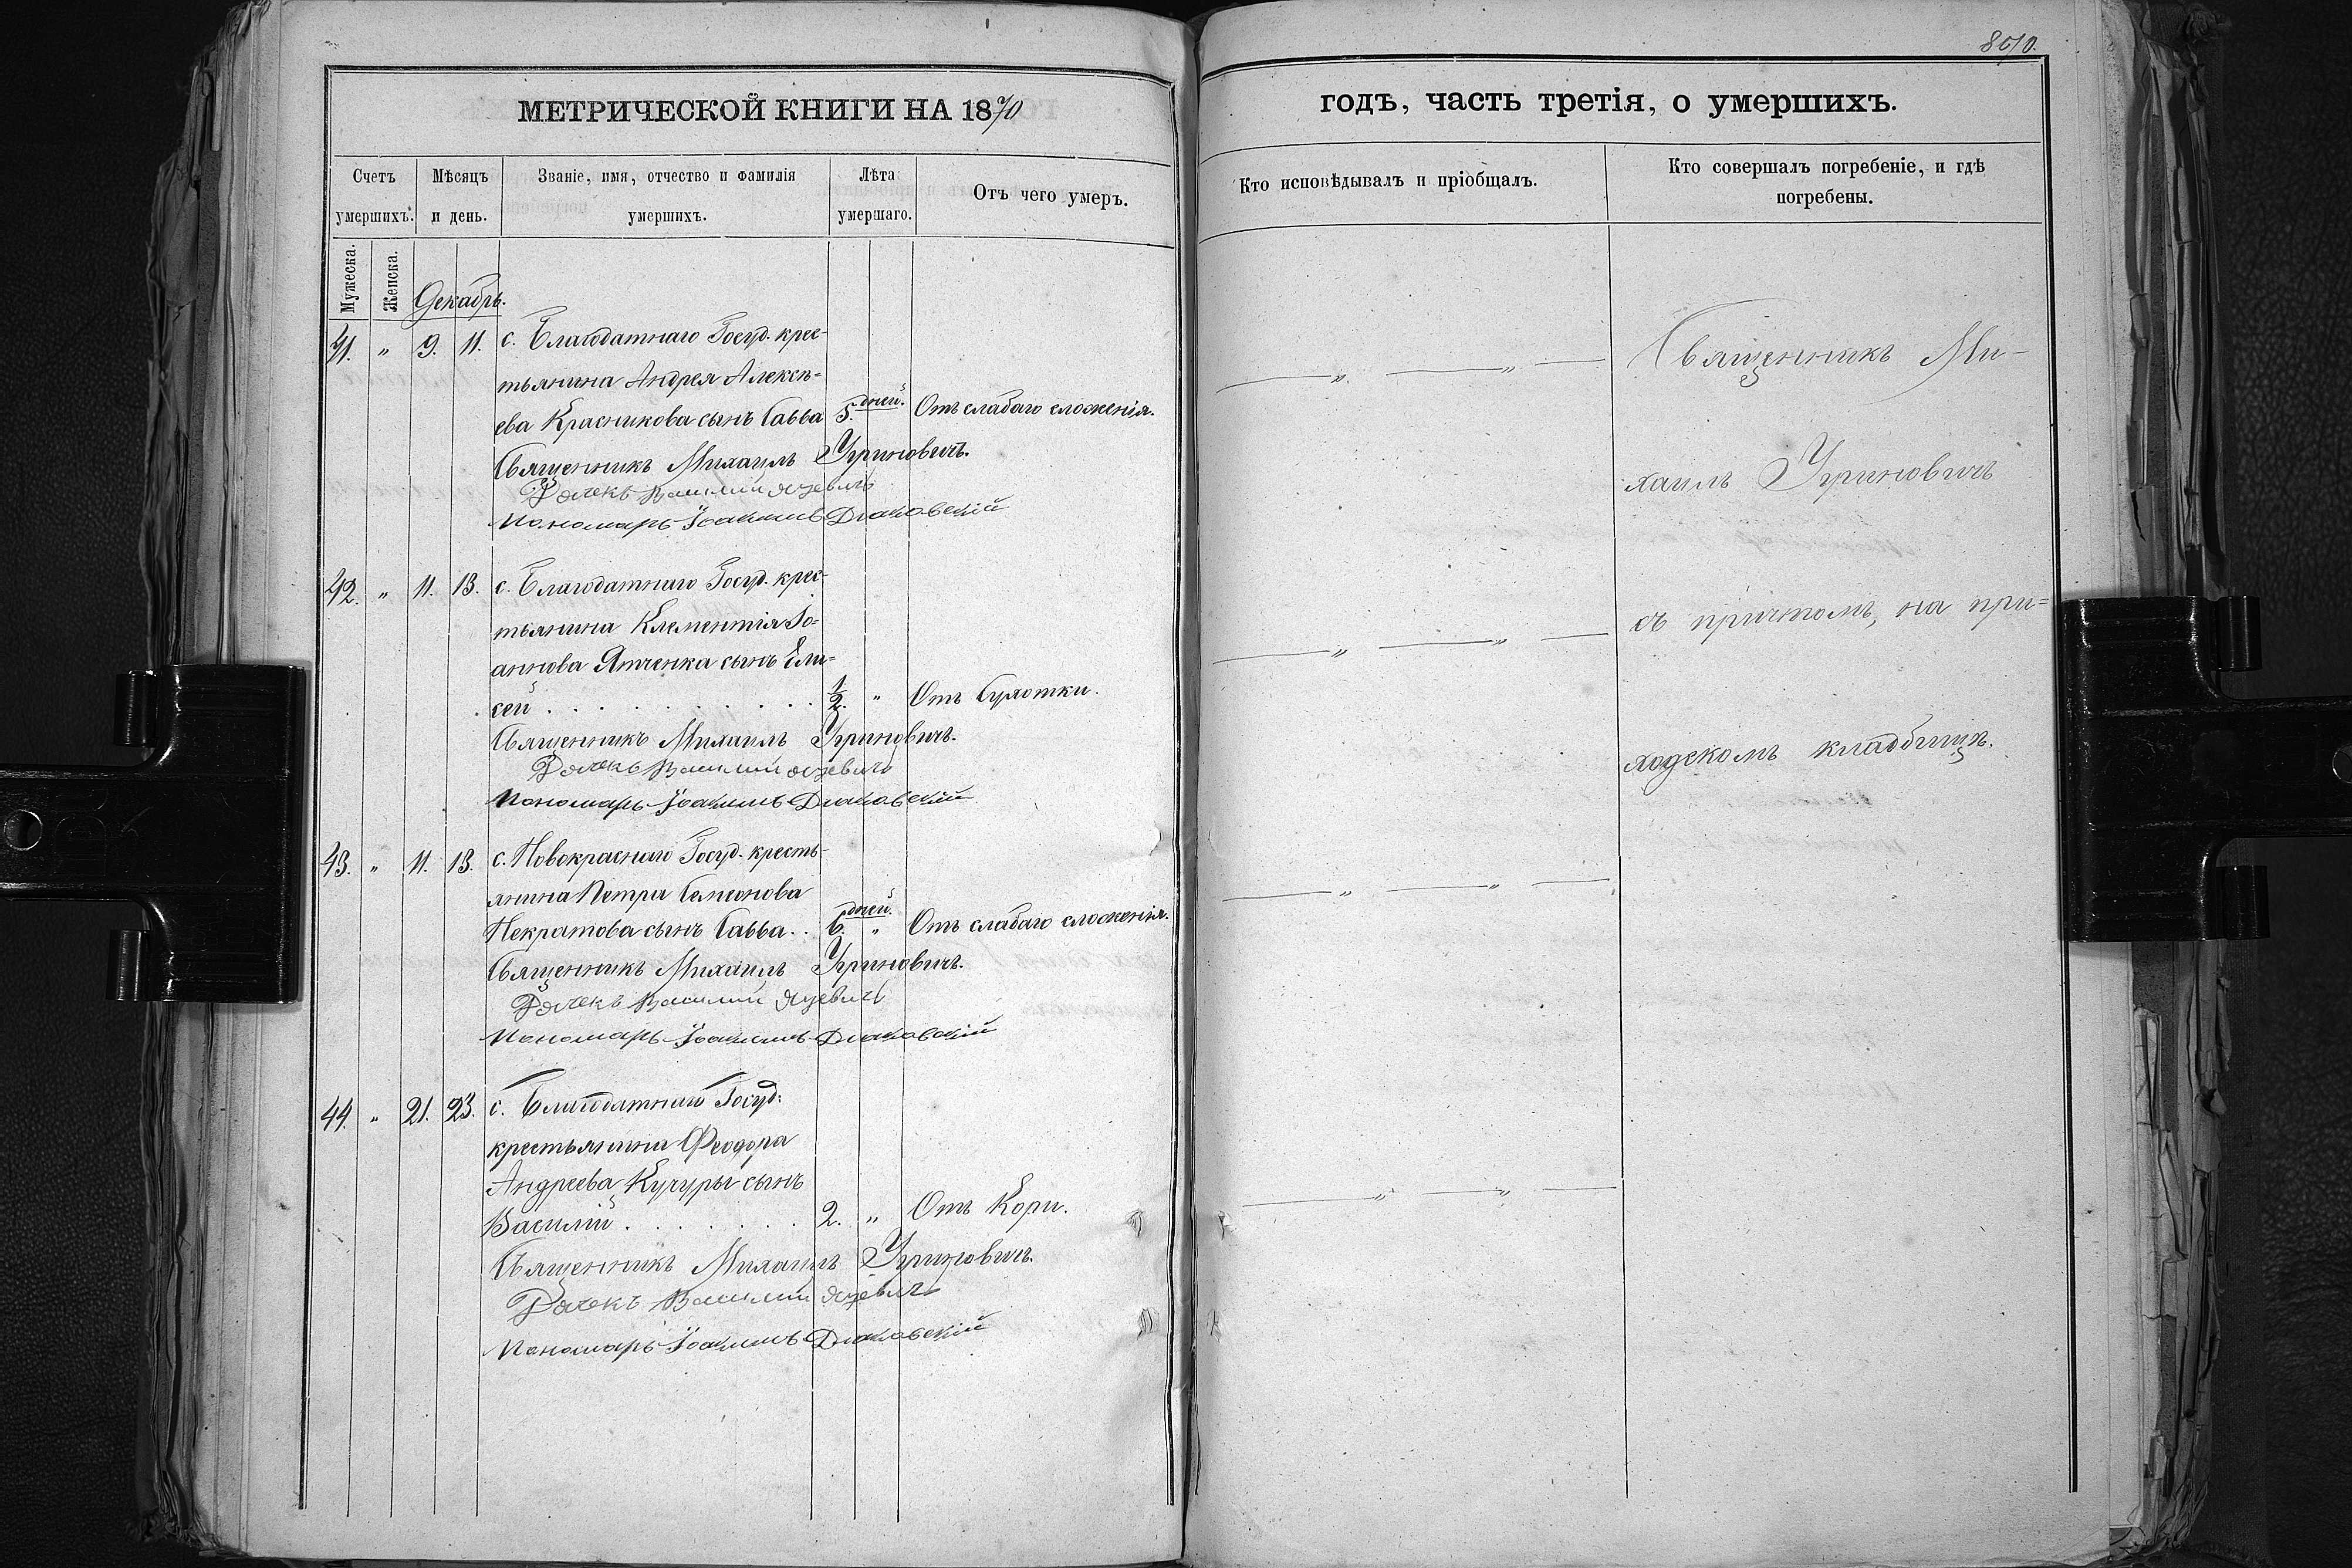 8010.
МЕТРИЧЕСКОЙ КНИГИ НА 1870
годъ, часть третія, о умершихъ.
Счетъ умершихъ.
Мѣсяцъ и день.
Званіе, имя, отчество и фамилія умершихъ.
Лѣта умершаго.
Отъ чего умеръ.
Кто исповѣдывалъ и пріобщалъ.
Кто совершалъ погребеніе, и гдѣ погребены.
Мужеска.
Женска.
Декабрь.
41. " 9. 11. с. Благодатнаго Госуд. крес-
тьянина Андрея Алексѣ-
ева Красникова сынъ Савва 5. дней. Отъ слабаго сложенія.
Священникъ Михаилъ Угриновичъ.
Дячекъ Василий
Пономарь Іоакимъ Диаковскій
42. " 11. 13. с. Благодатнаго Госуд. крес-
тьянина Клементія Іо-
аннова Ятченка сынъ Ели-
сей . . . . . . . . . . . 1/2. " Отъ Сухотки.
Священникъ Михаилъ Угриновичъ.
Дячекъ Василий
Пономарь Іоакимъ Диаковскій
43. " 11. 13. с. Новокраснаго Госуд. кресть-
янина Петра Семеонова
Некратова сынъ Савва . . 6. дней. " Отъ слабаго сложенія.
Священникъ Михаилъ Угриновичъ.
Дячекъ Василий
Пономарь Іоакимъ Диаковскій
44. " 21. 23. с. Благодатнаго Госуд.
крестьянина Феодора
Андреева Кучуры сынъ
Василій . . . . . . . 2. " Отъ Кори.
Священникъ Михаилъ Угриновичъ.
Дячекъ Василий
Пономарь Іоакимъ Диаковскій
Священникъ Ми-
хаилъ Угриновичъ
съ причтомъ, на при=
ходскомъ кладбищѣ.